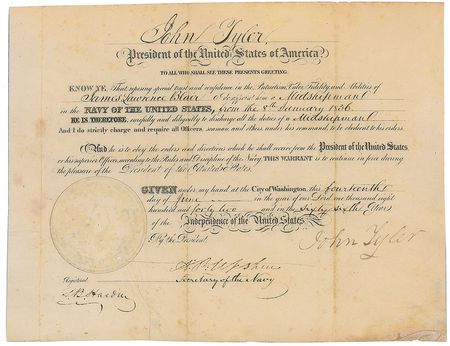 John Tyler,
President of the United States of America,
TO ALL WHO SHALL SEE THESE PRESENTS GREETING:
KNOW YE, That reposing special trust and confidence in the Patriotism, Valor, Fidelity, and Abilities of
James Lawrence Blair I do appoint him a Midshipman
in the NAVY OF THE UNITED STATES, from the 8th January 1836.
HE IS THEREFORE, carefully and diligently to discharge all the duties of a Midshipman
And I do strictly charge and require all Officers, seamen, and others, under his command, to be obedient to his orders.
And he is to obey the orders and directions which he shall receive from the President of the United States
or his superior Officers, according to the Rules and Discipline of the Navy. THIS WARRANT is to continue in force during
the pleasure of the President of the United States.
GIVEN under my hand at the City of Washington, this fourteenth
day of June in the year of our Lord one thousand eight
hundred and forty two and in the Sixty sixth Year
of the Independence of the United States.
By the President,
John Tyler
A. P. Upshur
Secretary of the Navy
Registered